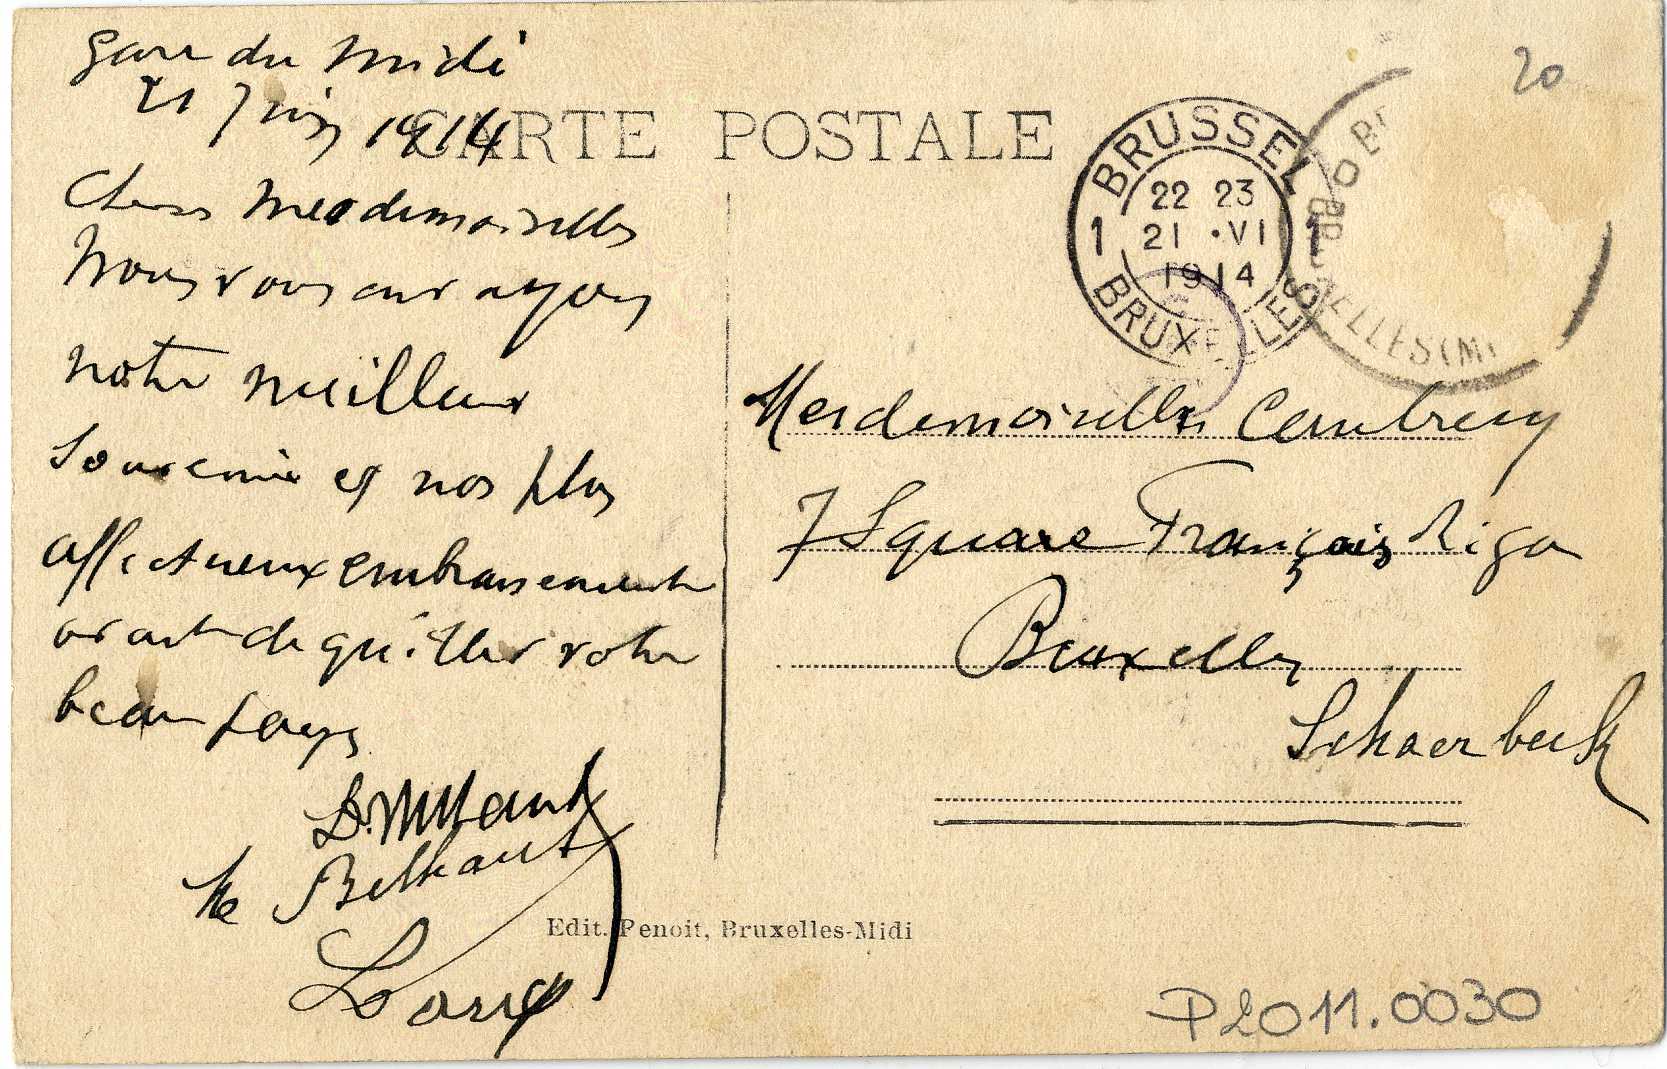 Gare du Midi
21 Juin 1914
CARTE POSTALE
Chères Mesdemoiselles
Nous vous envoyons
notre meilleur
Souvenir et nos plus
affectueux embrassements
avant de quitter votre
beau pays
Me
Edit. Penoit, Bruxelles-Midi
BRUSSEL
22 23
1 21 •VI 1
1914
BRUXELLES
BRUXELLES (MI
20
Mesdemoiselles Cambrecy
7 Square François Riga
Bruxelles
Schaerbeek
P2011.0030